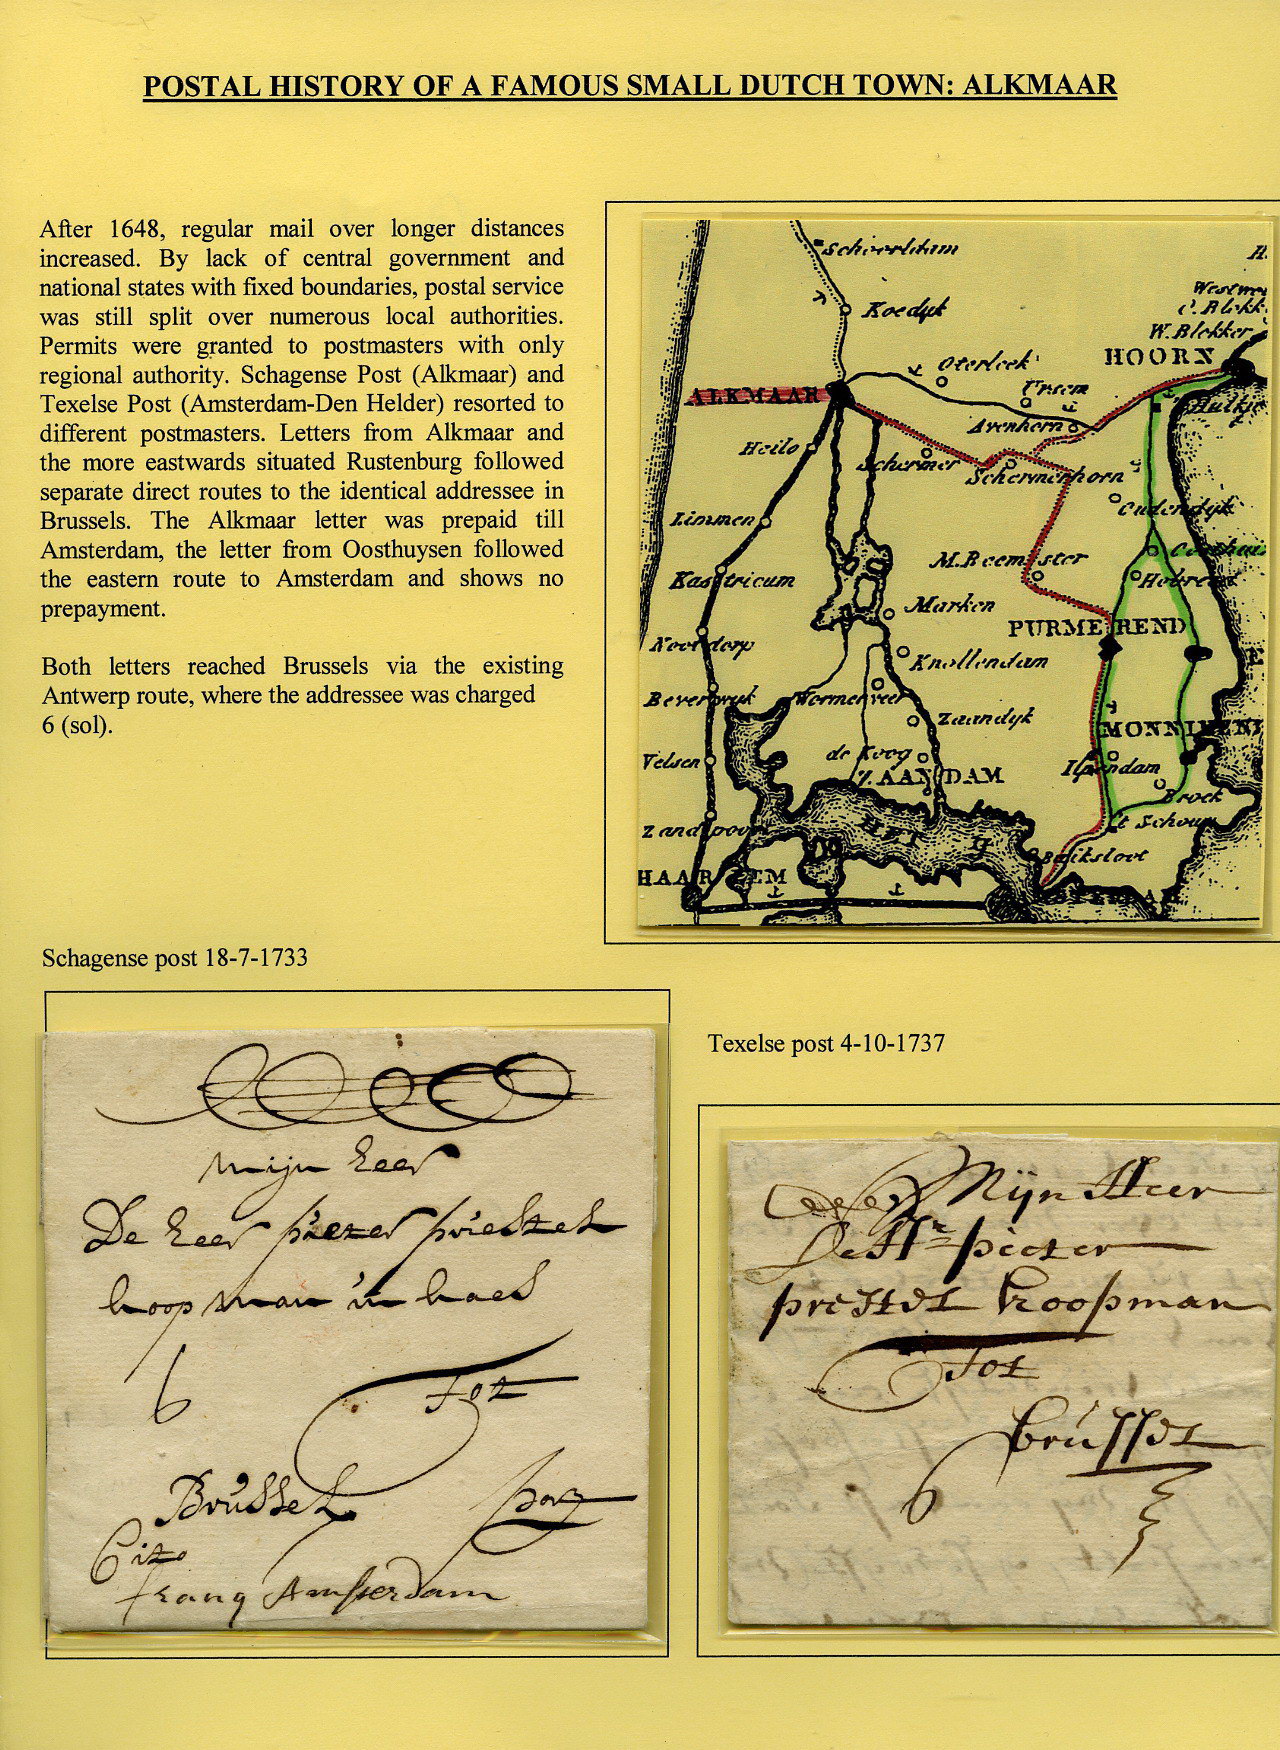 POSTAL HISTORY OF A FAMOUS SMALL DUTCH TOWN: ALKMAAR
After 1648, regular mail over longer distances
increased. By lack of central government and
national states with fixed boundaries, postal service
was still split over numerous local authorities.
Permits were granted to postmasters with only
regional authority. Schagense Post (Alkmaar) and
Texelse Post (Amsterdam-Den Helder) resorted to
different postmasters. Letters from Alkmaar and
the more eastwards situated Rustenburg followed
separate direct routes to the identical addressee in
Brussels. The Alkmaar letter was prepaid till
Amsterdam, the letter from Oosthuysen followed
the eastern route to Amsterdam and shows no
prepayment.
Both letters reached Brussels via the existing
Antwerp route, where the addressee was charged
6 (sol).
Schoorldam
Koedyk
W.Blokker
HOORN
Oterleek
Ursem
ALKMAAR
Avenhorn
Heilo
Schermer
Schermerhorn
Limmen
Oudendyk
M.Beemster
Kastricum
Marken
PURMEREND
Noordorp
Knollendam
Beverwyk
Wormerveer
Zaandyk
MONNIKEN
de Koog
Velsen
Ilpendam
ZAANDAM
Broek
Zandpoor
't Schouw
HET Y
Buiksloot
HAARLEM
Schagense post 18-7-1733
Mijn heer
De heer pieter priestel
koopman in kael
6
Tot
Brussel
port
Cito
franq Amsterdam
Texelse post 4-10-1737
Mijn Heer
De Hr pieter
prestel koopman
Tot
brussel
6